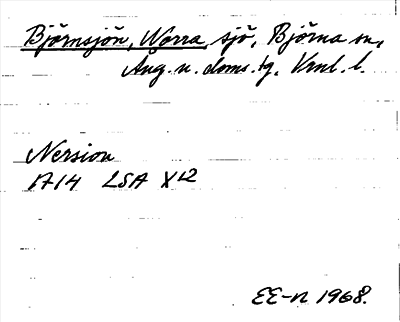 Björnsjön, Norra, sjö, Björna sn,
Ång. n. doms. tg. Vrnl. l.
Nersion
1714 LSA X12
EE-n 1968.